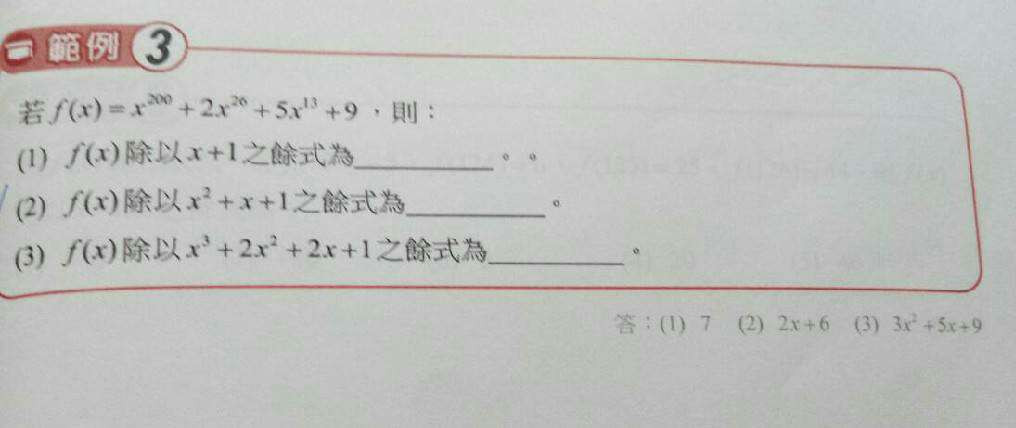 範例 3
若 f(x) = x²⁰⁰ + 2x²⁶ + 5x¹³ + 9 ，則：
(1) f(x) 除以 x+1 之餘式為__________。。
(2) f(x) 除以 x² + x + 1 之餘式為__________。
(3) f(x) 除以 x³ + 2x² + 2x + 1 之餘式為__________。
答：(1) 7 (2) 2x+6 (3) 3x² +5x+9